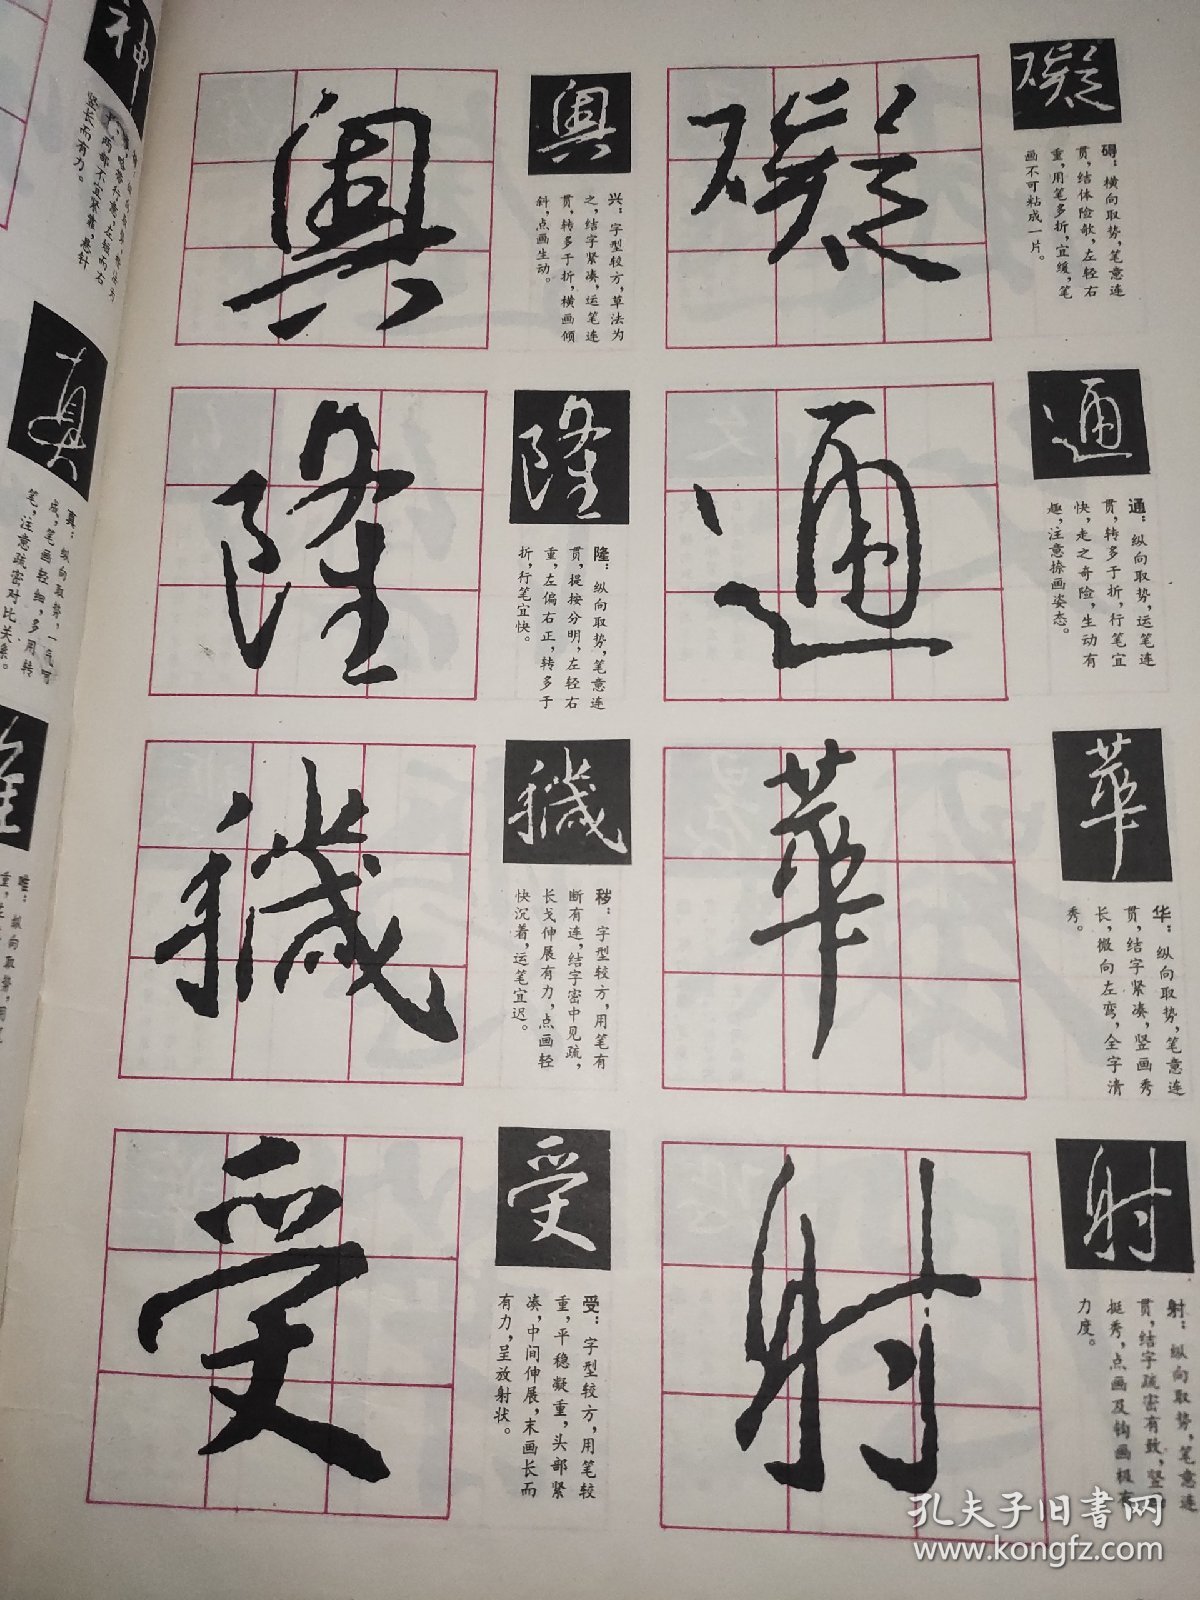 礙
碍：横向取势，笔意连
贯，结体险欹，左轻右
重，用笔多折，宜缓，笔
画不可粘成一片。
通
通：纵向取势，运笔连
贯，转多于折，行笔宜
快，走之奇险，生动有
趣，注意捺画姿态。
華
华：纵向取势，笔意连
贯，结字紧凑，竖画秀
长，微向左弯，全字清
秀。
射
射：纵向取势，笔意连
贯，结字疏密有致，竖
挺秀，点画及钩画极有
力度。
興
兴：字型较方，草法为
之，结字紧凑，运笔连
贯，转多于折，横画倾
斜，点画生动。
隆
隆：纵向取势，笔意连
贯，提按分明，左轻右
重，左偏右正，转多于
折，行笔宜快。
穢
秽：字型较方，用笔有
断有连，结字密中见疏，
长戈伸展有力，点画轻
快沉着，运笔宜迟。
受
受：字型较方，用笔较
重，平稳凝重，头部紧
凑，中间伸展，末画长而
有力，呈放射状。
神
两部不宜紧靠，悬针
竖长而有力。
真
真：纵向取势，一气呵
成，笔画轻细，多用转
笔，注意疏密对比关系。
唯：纵向取势，用
孔夫子旧书网
www.kongfz.com